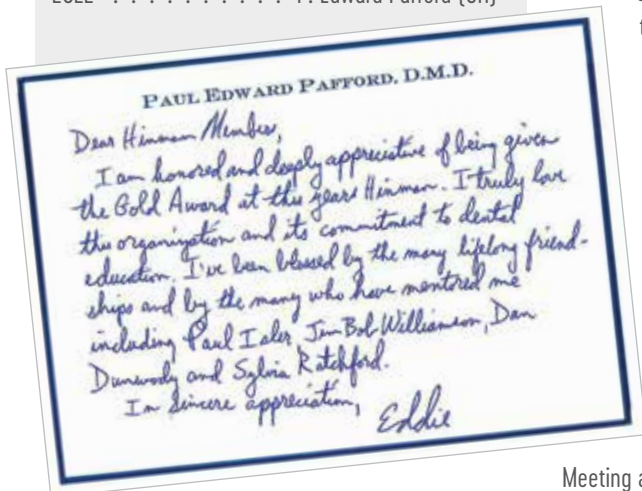 P. Edward Pafford
PAUL EDWARD PAFFORD, D.M.D.
Dear Hinman Member,
I am honored and deeply appreciative of being given
the Gold Award at this years Hinman. I truly love
this organization and its commitment to dental
education. I've been blessed by the many lifelong friend-
ships and by the many who have mentored me
including Paul Isler, Jim Bob Williamson, Dan
Dunwody and Sylvia Ratchford.
In sincere appreciation,
Eddie
Meeting